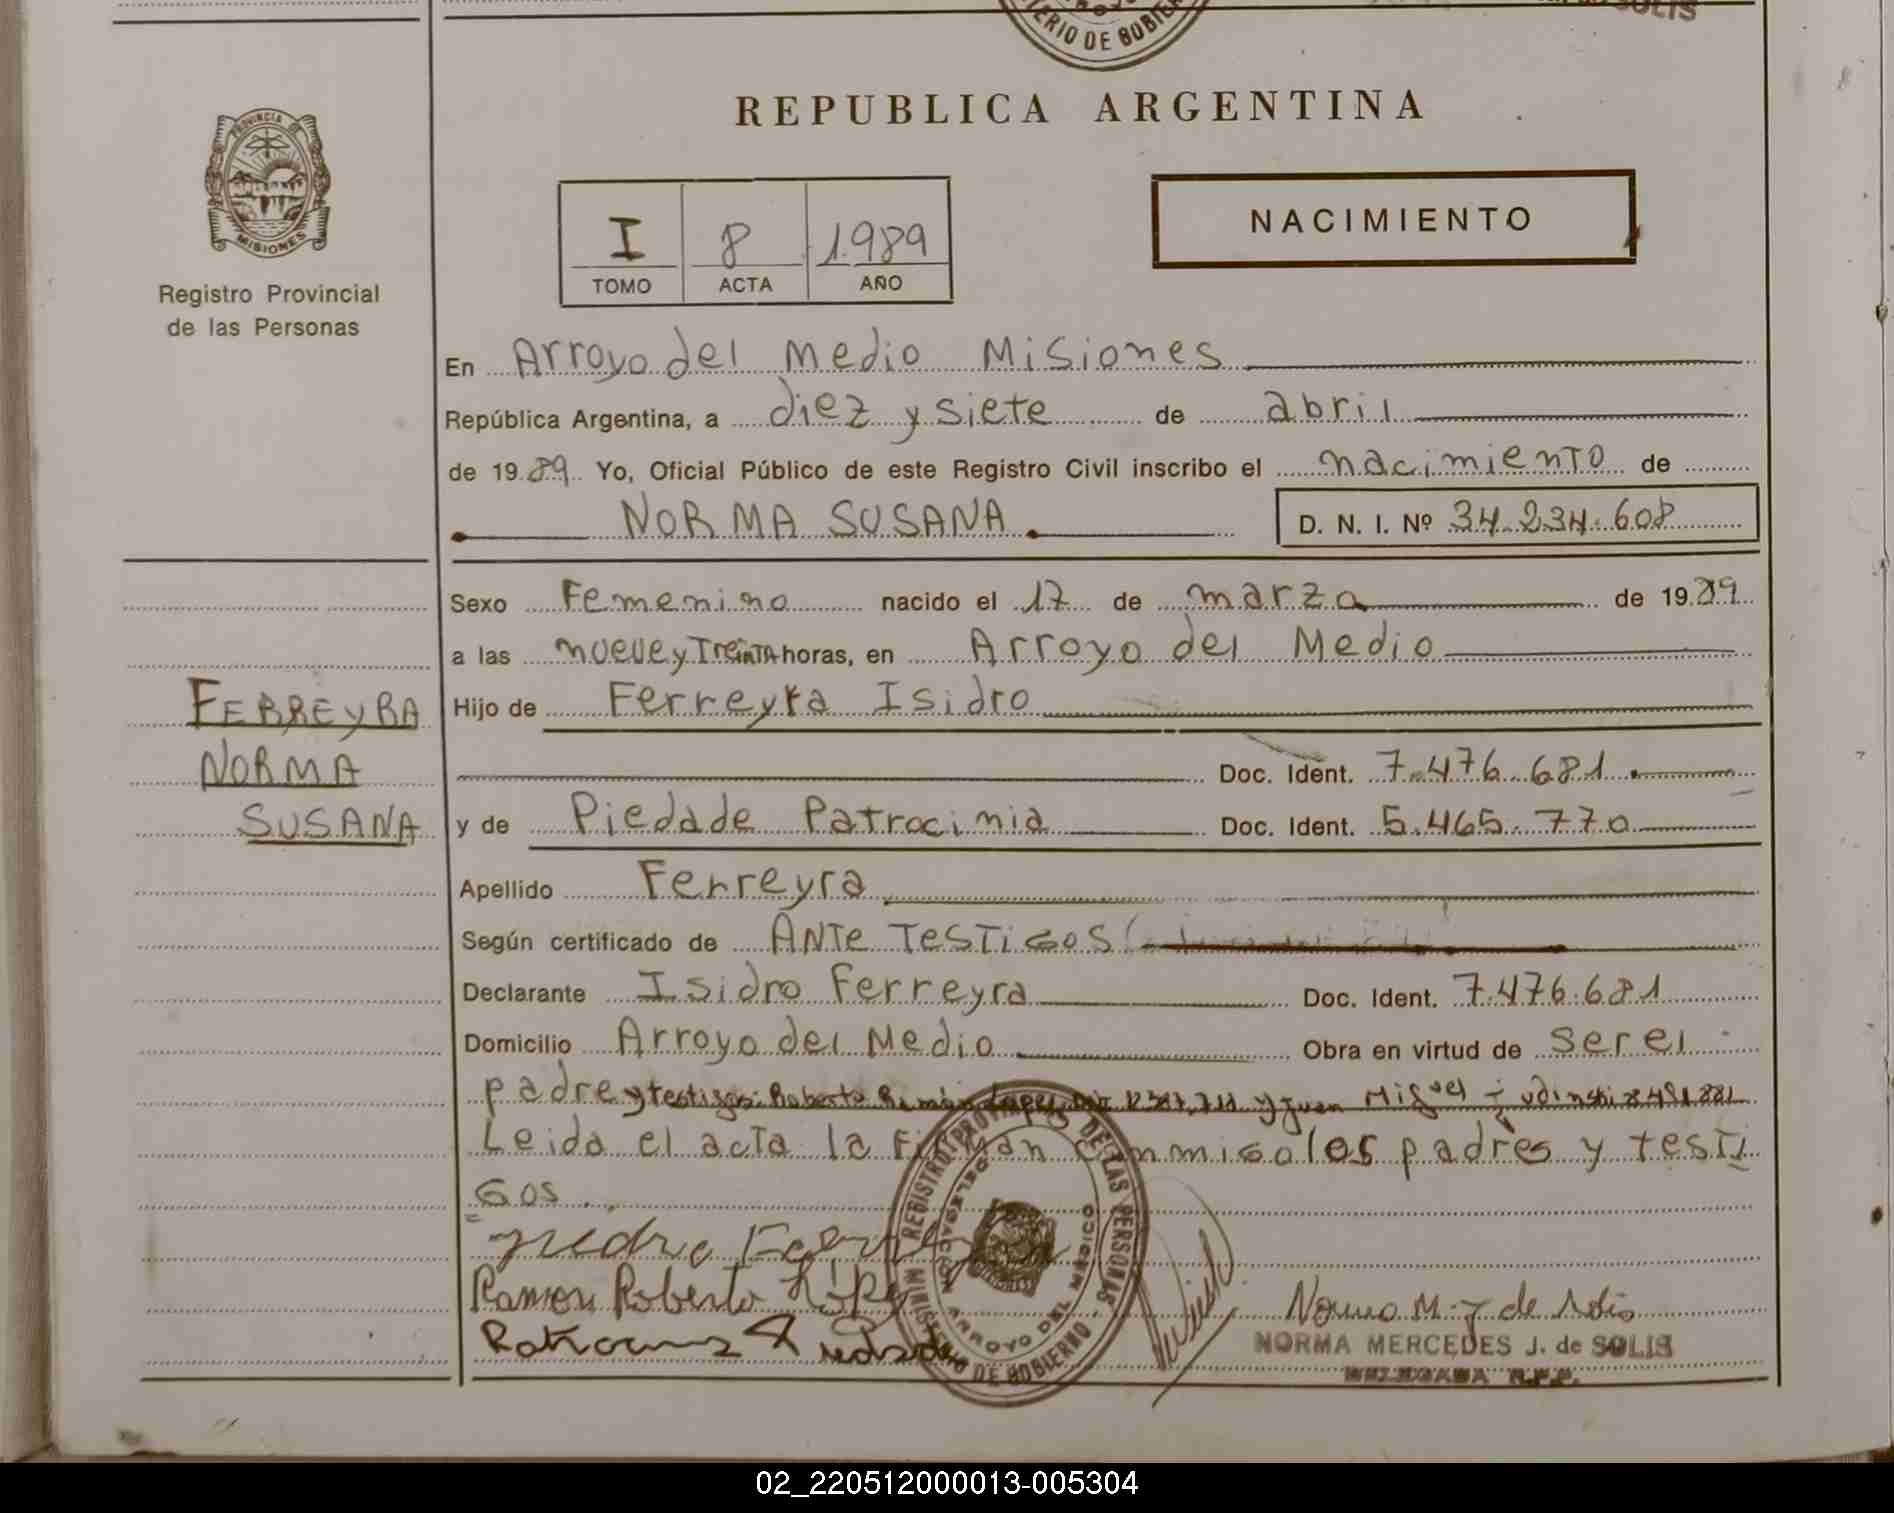 MINISTERIO DE GOBIERNO
SOLIS
REPUBLICA ARGENTINA
PROVINCIA DE
MISIONES
Registro Provincial
de las Personas
I 8 1.989
TOMO ACTA AÑO
NACIMIENTO
En Arroyo del Medio Misiones
República Argentina, a diez y siete de abril
de 19 89 Yo, Oficial Público de este Registro Civil inscribo el nacimiento de
NORMA SUSANA D. N. I. Nº 34.234.608
Sexo Femenino nacido el 17 de marzo de 19 89
a las nueve y Treinta horas, en Arroyo del Medio
Hijo de Ferreyra Isidro
Doc. Ident. 7.476.681
y de Piedade Patrocinia Doc. Ident. 5.465.770
FERREYRA
NORMA
SUSANA
Apellido Ferreyra
Según certificado de ANTE TESTIGOS
Declarante Isidro Ferreyra Doc. Ident. 7.476.681
Domicilio Arroyo del Medio Obra en virtud de ser el
padre y testigos: Roberto Ramón Lopez y Juan Miguel
Leida el acta la firman conmigo los padres y testi
gos.
Isidro Ferreyra
Ramon Roberto López
REGISTRO PROV. DE LAS PERSONAS
MINISTERIO DE GOBIERNO
DELEGACION ARROYO DEL MEDIO
Norma M. J de Solis
NORMA MERCEDES J. de SOLIS
DELEGADA R.P.P.
02_220512000013-005304